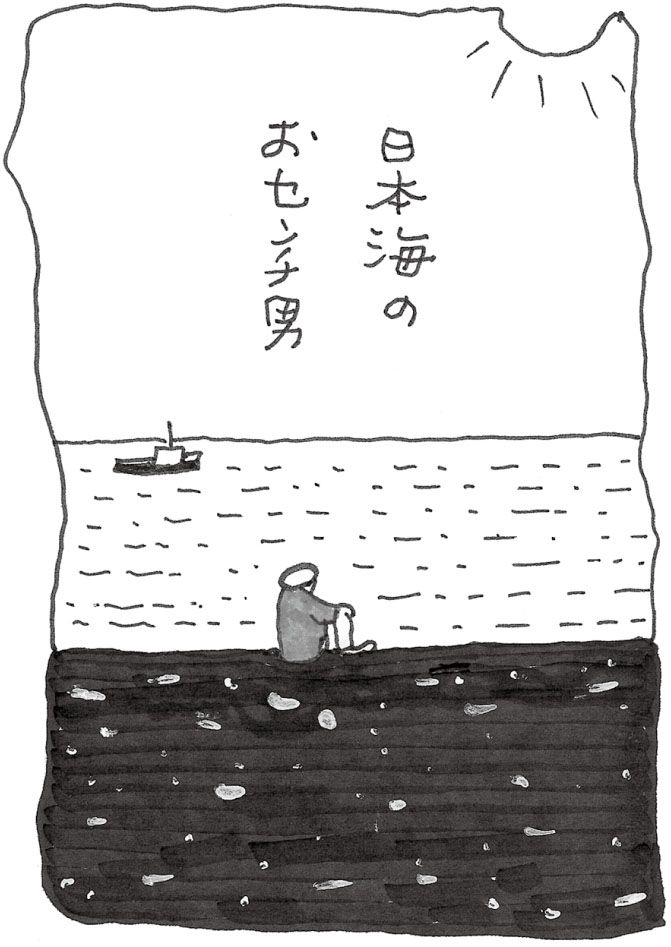 日本海の
おセンチ男